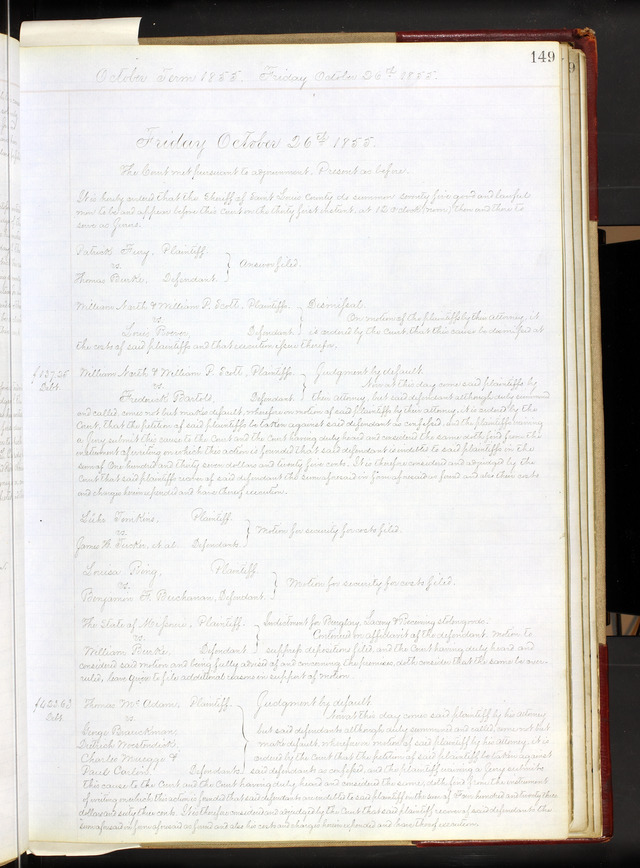 149
October Term 1855. Friday October 26th 1855.
Friday October 26th 1855.
The Court met pursuant to adjournment. Present as before.
It is hereby ordered that the Sheriff of Saint Louis County do summon seventy five good and lawful
men to be and appear before this Court on the thirty first instant, at 12 o'clock, noon, then and there to
serve as Jurors.
Patrick Fury, Plaintiff.
vs.
Thomas Burke, Defendant.
Answer filed.
William North & William P. Scott, Plaintiffs.
vs.
Louis Defendant.
Dismissal.
On motion of the plaintiffs by their attorney, it
is ordered by the Court, that this cause be dismissed at
the costs of said plaintiffs and that execution issue therefor.
$137,25
Debt.
William North & William P. Scott, Plaintiffs.
vs.
Frederick Bartels, Defendant.
Judgment by default.
Now at this day come said plaintiffs by
their attorney, but said defendant although duly summoned
and called, comes not but makes default, wherefore on motion of said plaintiffs by their attorney, it is ordered by the
Court, that the petition of said plaintiffs be taken against said defendant as confessed, and the plaintiffs waiving
a Jury submit this cause to the Court and the Court having duly heard and considered the same doth find from the
instrument of writing on which this action is founded that said defendant is indebted to said plaintiffs in the
sum of One hundred and thirty seven dollars and twenty five cents. It is therefore considered and adjudged by the
Court that said plaintiffs recover of said defendant the sum aforesaid in form aforesaid as found and also their costs
and charges herein expended and have thereof execution.
Tomkins, Plaintiff.
vs.
James W. et al. Defendants.
Motion for security for costs filed.
Louisa Plaintiff.
vs.
Benjamin F. Buchanan, Defendant.
Motion for security for costs filed.
The State of Missouri, Plaintiff.
vs.
William Burke, Defendant.
Indictment for Burglary, Larceny & Receiving stolen goods.
Continued on affidavit of the defendant. Motion to
suppress depositions filed, and the Court having duly heard and
considered said motion and being fully advised of and concerning the premises, doth consider that the same be over-
ruled, leave given to file additional reasons in support of motion.
$423,63
Debt.
Thomas McAdam, Plaintiff.
vs.
Charles &
Paul Defendants.
Judgment by default.
Now at this day comes said plaintiff by his attorney
but said defendants although duly summoned and called, come not but
make default, wherefore on motion of said plaintiff by his attorney, it is
ordered by the Court that the petition of said plaintiff be taken against
said defendants as confessed, and the plaintiff waiving a Jury submits
this cause to the Court and the Court having duly heard and considered the same doth find from the instrument
of writing on which this action is founded that said defendants are indebted to said plaintiff in the sum of Four hundred and twenty three
dollars and sixty three cents. It is therefore considered and adjudged by the Court that said plaintiff recover of said defendants the
sum aforesaid in form aforesaid as found and also his costs and charges herein expended and have thereof execution.